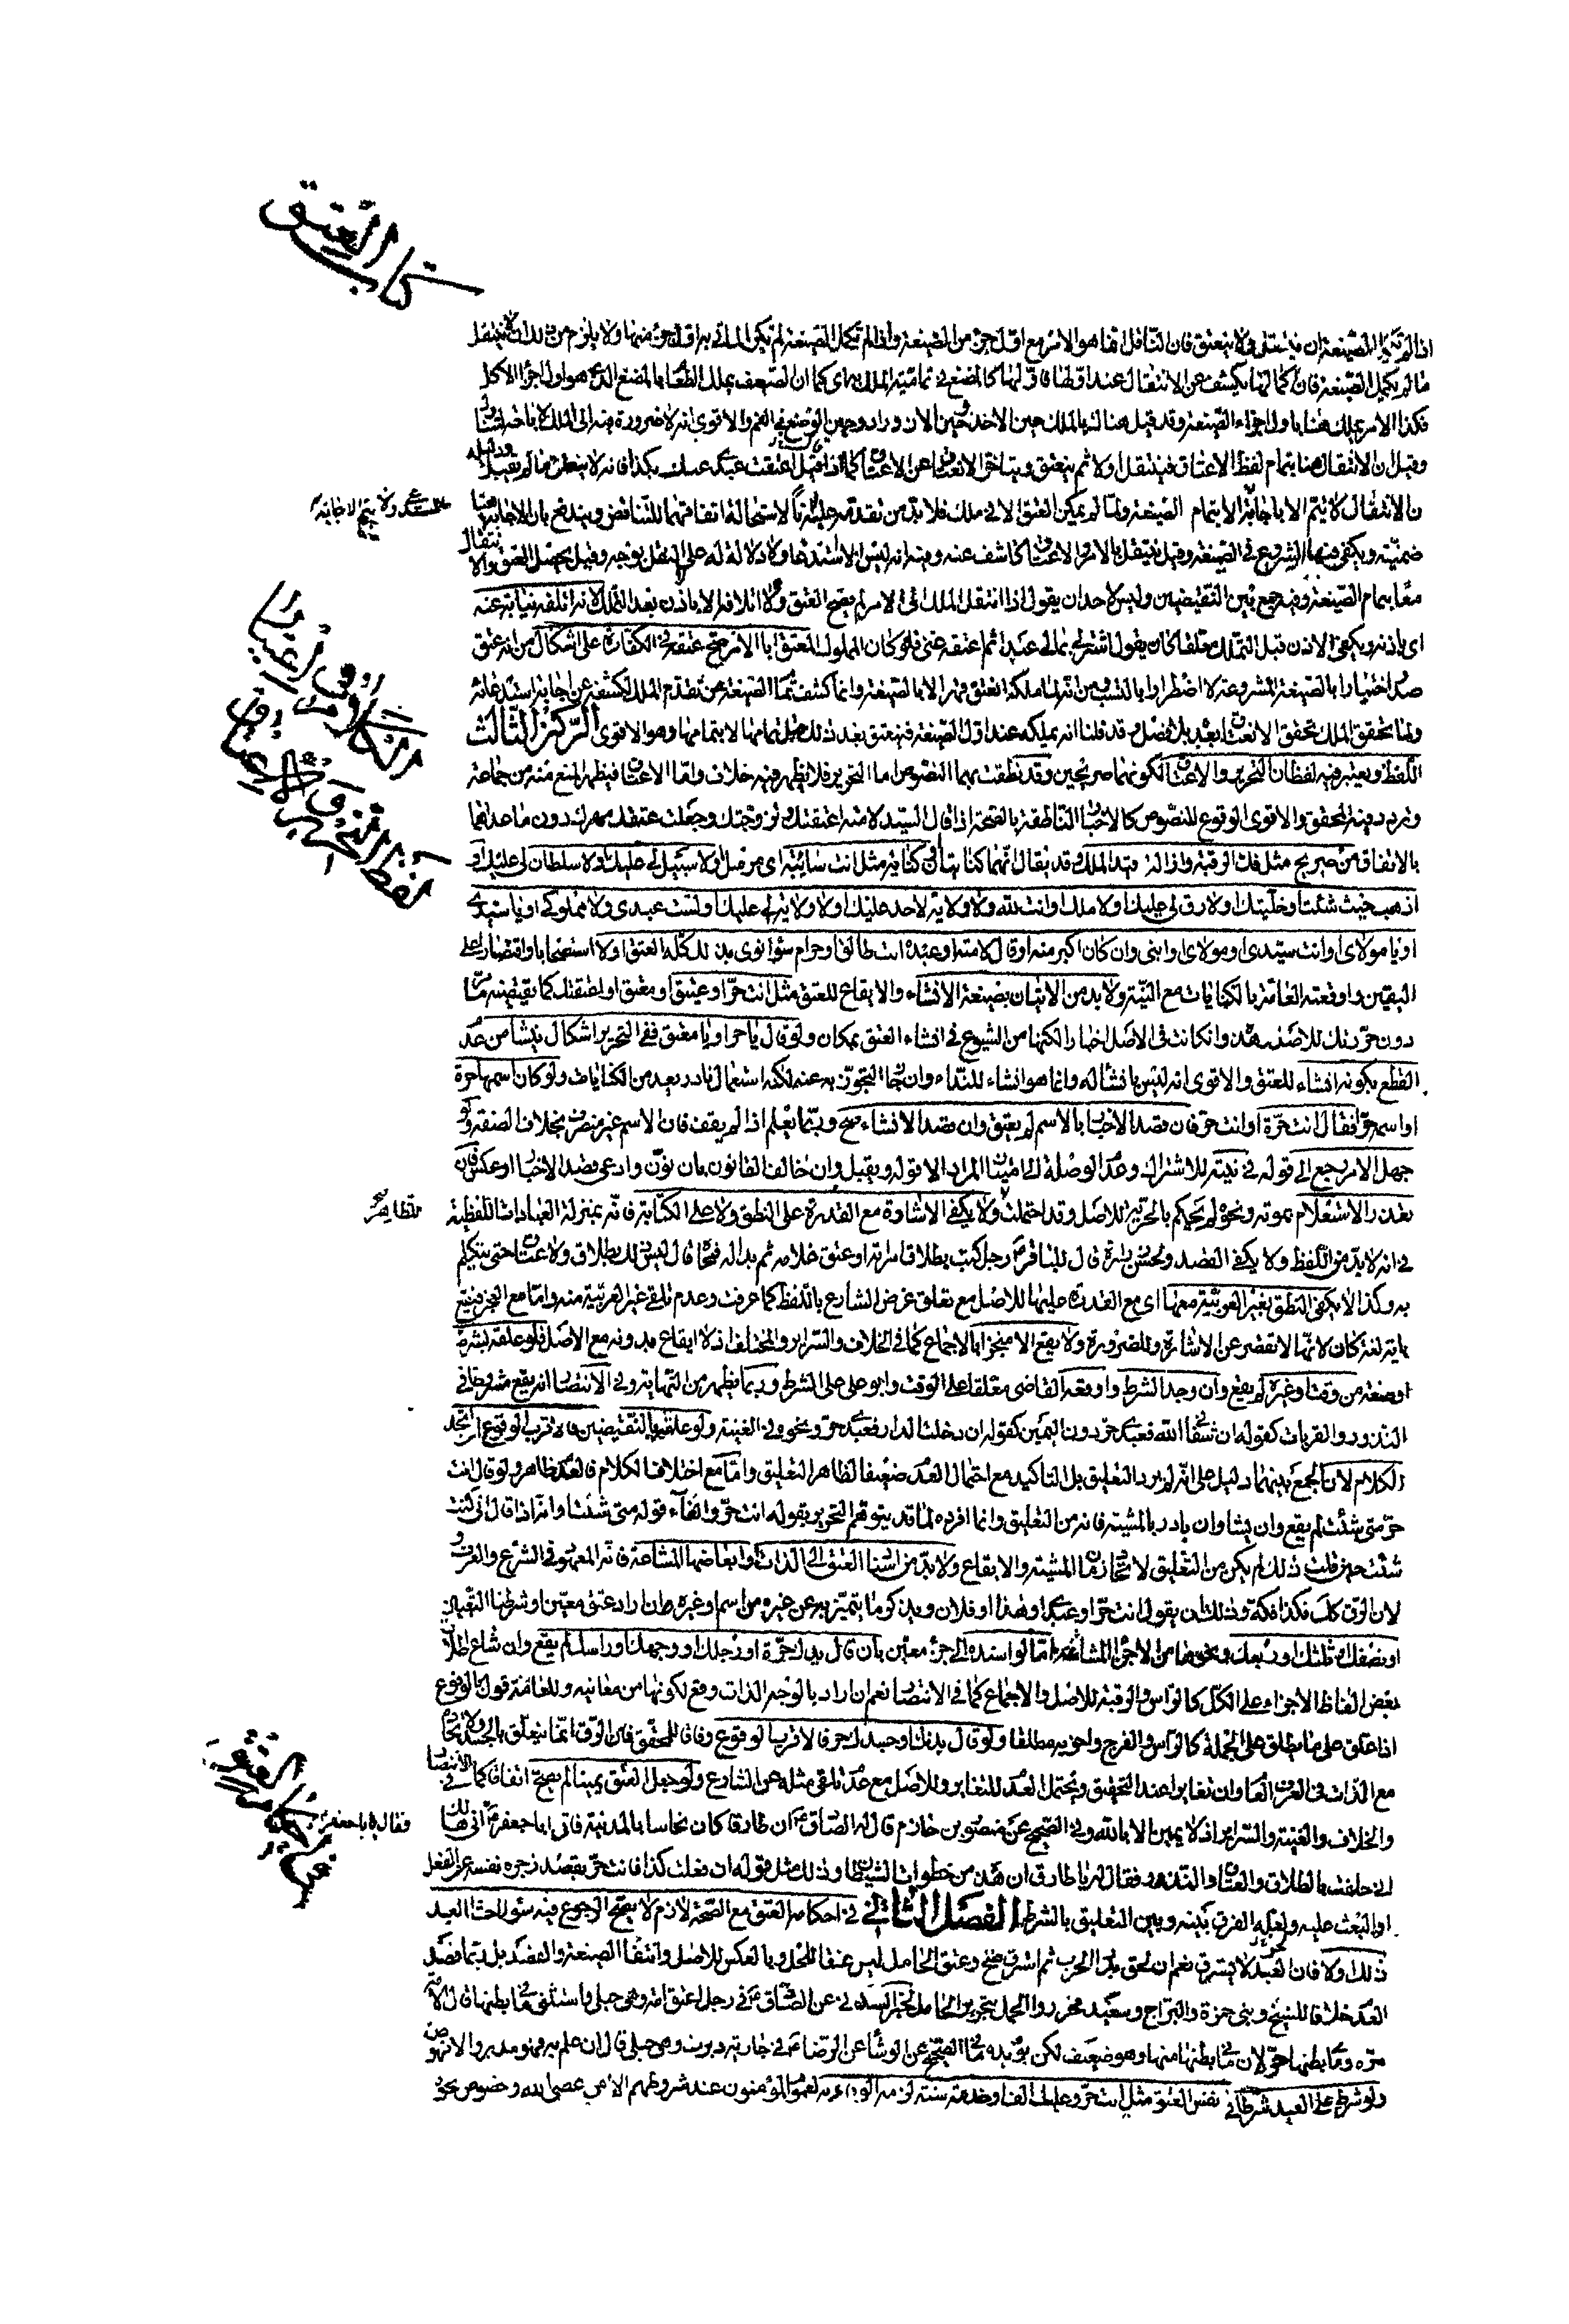 كتاب العتق
اذا لم تكمل الصيغة ان ينتقل ولا ينعتق فان الناقل انما هو الامر مع اول جزء من الصيغة واذا لم تكمل الصيغة لم يكن الماتى به اول جزء منها ولا يلزم من ذلك ان لا ينتقل
ما لم يكمل الصيغة فان كمالها يكشف عن الانتقال عند اولها كالمضغ في تمامية الملك به اى كما ان الضيف يملك الطعام بالمضغ الذى هو اول اجزاء الاكل
فكذا الامر يملك هنا باول اجزاء الصيغة وقد قيل هناك بالملك حين الاخذ وحين الاذن وحين الوضع في الفم والاقوى انه لا ضرورة فيه الى الملك لاباحة
وقيل ان الانتقال هنا بتمام لفظ الاعتاق فينتقل اولا ثم ينعتق ويتاخر الانعتاق عن الاعتاق كما اذا قيل اعتقت عبدى عنك بكذا فانه لا ينعتق ما لم يقبل
ن الانتقال لا يتم الا باجابة الا بتمام الصيغة ولما لم يمكن العتق الا في ملك فلا بد من تقدمه عليه زمانا لاستحالة اتفاقهما للتناقض ويندفع بان الاجابة هنا
ضمنية ويكفى فيها الشروع في الصيغة وقيل ينتقل بالامر والاعتاق كاشف عنه وفيه انه ليس الا استدعاء ولا دلالة له على النقل بوجه وقيل يحصل العتق والانتقال
معا بتمام الصيغة وفيه جمع بين النقيضين وليس لاحد ان يقول اذا انتقل الملك الى الامر لم يصح العتق ولا اتلافه الا باذن بعد التملك لانه اتلفه نيابة عنه
اى باذنه ويكفى الاذن قبل التملك معلقا كان يقول اشتر لى بمالى عبدا ثم اعتقه عنى فلو كان المملوك المعتق ابا الامر صح عتقه في الكفارة على اشكال من انه عتق
صدر اختيارا بالصيغة المشروعة لا اضطرارا بالنسب ومن انه لما ملكه انعتق قهرا لا بالصيغة وانما كشف تمام الصيغة عن تقدم الملك لكشفه عن اجابة استدعائه
ولما تحقق الملك تحقق الانعتاق بعد بلا فصل وقد قلنا انه يملكه عند اول الصيغة فينعتق بعد ذلك قبل تمامها لا بتمامها وهو الاقوى الركن الثالث
اللفظ ويعتبر فيه لفظان التحرير والاعتاق لكونهما صريحين وقد نطقت بهما النصوص اما التحرير فلا يظهر فيه خلاف واما الاعتاق فيظهر المنع منه من جماعة
وتردد فيه المحقق والاقوى الوقوع للنصوص كالاخبار الناطقة بالصحة اذا قال السيد لامته اعتقتك وتزوجتك وجعلت عتقك مهرك دون ما عداهما
بالاتفاق من صريح مثل فك الرقبة وازالة قيد الملك وقد يقال انهما كنايتان او كناية مثل انت سائبة اى مرسل ولا سبيل لى عليك ولا سلطان لى عليك او
اذهب حيث شئت او خليتك او لا رق لى عليك او لا ملك او انت لله ولا ولاية لاحد عليك او لا ولاية لى عليك او لست عبدى ولا مملوكى او يا سيدى
او يا مولاى او انت سيدى او مولاى او ابنى وان كان اكبر منه او قال لامته او عبده انت طالق او حرام سواء نوى بذلك كله العتق او لا استصحابا واقتصارا على
اليقين واوقعته العامة بالكنايات مع النية ولا بد من الاتيان بصيغة الانشاء والايقاع للعتق مثل انت حر او عتيق او معتق او اعتقتك كما يقتضيه ما مر
دون حررتك للاصل هذه وان كانت في الاصل اخبارا لكنها من الشيوع في انشاء العتق بمكان ولو قال يا حر او يا معتق ففى التحرير اشكال ينشا من عدم
القطع بكونه انشاء للعتق والاقوى انه ليس بانشاء له وانما هو انشاء للنداء وان جاز التجوز به عنه لكنه استعمال نادر بعيد من الكنايات ولو كان اسمها حرة
او اسمه حر فقال انت حرة او انت حر فان قصد الاخبار بالاسم لم يعتق وان قصد الانشاء صح وربما يعلم اذا لم يقف فان الاسم غير منصرف بخلاف الصفة ولو
جهل الامر رجع الى قوله في نيته للاشتراك وعدم الوصلة الى امتياز المراد الا قوله ويقبل وان خالف القانون بان نون وادعى قصد الاخبار او عكس فان
تعذر الاستعلام بموته ونحوه لم يحكم بالحرية للاصل وقد احتملت ولا يكفى الاشارة مع القدرة على النطق ولا على الكتابة فانه بمنزلة العبادات اللفظية
في انه لا بد من اللفظ ولا يكفى القصد ولحسن زرارة قال للباقر ع رجل كتب بطلاق امراته او عتق غلامه ثم بدا له فمحاه قال ليس ذلك بطلاق ولا عتاق حتى يتكلم
به وكذا لا يكفى النطق بغير العربية معها اى مع القدرة عليها للاصل مع تعلق غرض الشارع باللفظ كما عرفت وعدم تلقى غير العربية منه واما مع العجز فيقع
باية لغة كان لانها لا تقصر عن الاشارة وللضرورة ولا يقع الا منجزا بالاجماع كما في الخلاف والسرائر والمختلف اذ لا ايقاع بدونه مع الاصل فلو علقه بشرط
او صفة من وقت وغيره لم يقع وان وجد الشرط واوقعه القاضى معلقا على الوقت وابو على على الشرط وربما يظهر من النهاية وفي الانتصار انه يقع مشروطا في
النذور والقربات كقوله ان شفانى الله فعبدى حر دون اليمين كقوله ان دخلت الدار فعبدى حر ونحوه في الغنية ولو علقه بالنقيضين فالاقرب الوقوع ان اتحد
الكلام لان الجمع بينهما دليل على انه لم يرد التعليق بل التاكيد مع احتمال العدم ضعيفا لظاهر التعليق واما مع اختلاف الكلام فالعدم ظاهر ولو قال انت
حر متى شئت لم يقع وان شاء وان بادر بالمشية فانه من التعليق وانما افرده لما قد يتوهم التحرير بقوله انت حر والغاء قوله متى شئت وانه اذا قال ان كنت
شئت حين قلت ذلك لم يكن من التعليق لاتحاد زمان المشية والايقاع ولا بد من اسناد العتق الى الذات او ابعاضها المشاعة فانه المعهود في الشرع والعرف و
لان الرق كذلك فكذا فكه وذلك بان يقول انت حر او عبدى او هذا او فلان ويذكر ما يتميز به عن غيره من اسم او غيره وان اراد عتق معين او شرطنا التعيين
او نصفك او ثلثك او ربعك ونحوها من الاجزاء المشاعة اما لو اسنده الى جزء معين بان قال يدك حرة او رجلك او وجهك او راسك لم يقع وان شاع اطلاق
بعض الفاظ الاجزاء على الكل كالراس والرقبة للاصل والاجماع كما في الانتصار نعم ان اراد بالوجه الذات وقع لكونها من معانيه وللعامة قول بالوقوع
اذا علق على ما يطلق على الجملة كالراس والفرج واخر به مطلقا ولو قال بدنك او جسدك حر فالاقرب الوقوع وفاقا للمحقق فان الرق انما يتعلق بالجسد ولاتحاده
مع الذات في العرف العام وان تغايرا عند التحقيق ويحتمل العدم للتغاير وللاصل مع عدم تلقى مثله عن الشارع ولو جعل العتق يمينا لم يصح اتفاقا كما في الانتصار
والخلاف والغنية والسرائر اذ لا يمين الا بالله وفي الصحيح عن منصور بن حازم قال له الصادق ع ان طارقا كان نخاسا بالمدينة فاتى ابا جعفر ع فقال يا ابا جعفر انى هالك
انى حلفت بالطلاق والعتاق والنذور فقال له يا طارق ان هذه من خطوات الشيطان وذلك مثل قوله ان فعلت كذا فانت حر بقصد زجره نفسه عن الفعل
او البعث عليه ولعله الفرق بينه وبين التعليق بالشرط الفصل الثانى في احكامه العتق مع الصحة لازم لا يصح الرجوع فيه سواء اختار العبد
ذلك او لا فان الحر لا يسترق نعم ان لحق بدار الحرب ثم استرق صح وعتق الحامل ليس عتقا للحمل وبالعكس للاصل وانتفاء الصيغة والقصد بل ربما قصد
العدم خلافا للشيخ وبنى حمزة والبراج وسعيد فحرروا الحمل بتحرير الحامل لخبر السكونى عن الصادق ع في رجل اعتق امة وهى حبلى فاستثنى ما في بطنها قال الامة
حرة وما في بطنها حر لان ما في بطنها منها وهو ضعيف لكن يؤيده ما في الصحيح عن الوشاء عن الرضا ع في جارية دبرت وهى حبلى قال ان علم به فهو مدبر والا فهو رق
ولو شرط على العبد شرطا في نفس العتق مثل انت حر وعليك الف او خدمة سنة لزمه الوفاء به لعموم المؤمنون عند شروطهم الا من عصى الله وخصوص نحو